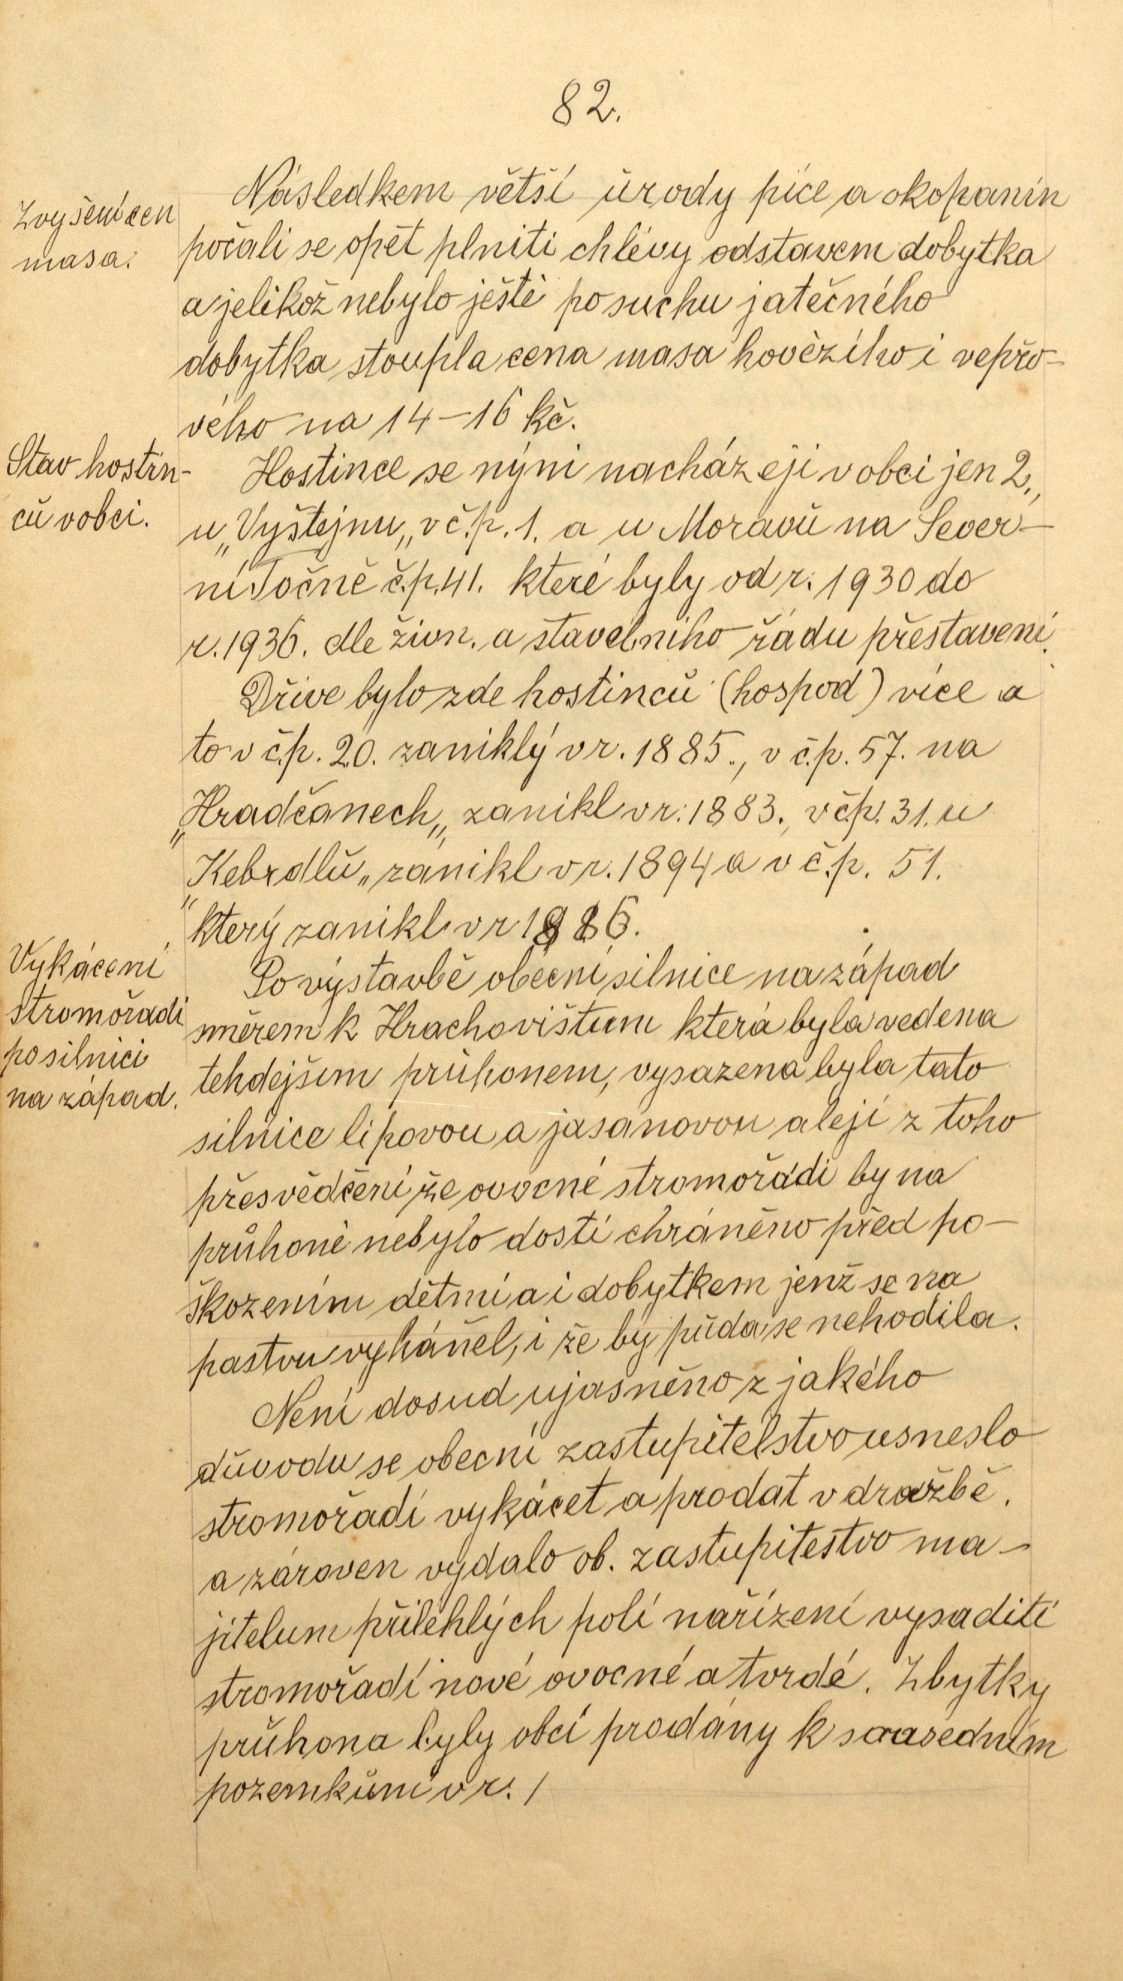 82.
Zvyšení cen
masa.
Následkem větší úrody píce a okopanin
počali se opět plniti chlévy odstavem dobytka
a jelikož nebylo ještě po suchu jatečného
dobytka stoupla cena masa hovězího i vepřo-
vého na 14-16 kč.
Stav hostin-
ců v obci.
Hostince se nýni nacházeji v obci jen 2.,
u „Vyštejnu„ v č.p. 1. a u Moravů na Sever-
ní Točně č.p. 41. které byly od r. 1930 do
r. 1936. dle živn. a stavebního řádu přestaveni.
Dřive bylo zde hostinců (hospod) více a
to v č.p. 20. zaniklý v r. 1885., v č.p. 57. na
„Hradčanech„ zanikl v r. 1883., v čp. 31. u
„Kebrdlů„ zanikl v r. 1894 a v č.p. 51.
který zanikl v r
Vykácení
stromořadí
po silnici
na západ.
Po výstavbě obecní silnice na západ
směrem k Hrachovištum která byla vedena
tehdejšim průhonem, vysazena byla tato
silnice lipovou a jasanovou alejí z toho
přesvědčení že ovocné stromořádi by na
průhoně nebylo dosti chráněno před po-
škozením dětmi a i dobytkem jenž se na
pastvu vyháňel, i že by půda se nehodila.
Není dosud ujasněno z jakého
důvodu se obecni zastupitelstvo usneslo
stromořadí vykácet a prodat v dražbě.
a zároven vydalo ob. zastupitestvo ma-
jitelum přilehlých polí nařízení vysaditi
stromořadí nové ovocné a tvrdé. Zbytky
průhona byly obcí prodány k sousedním
pozemkům v r. 1